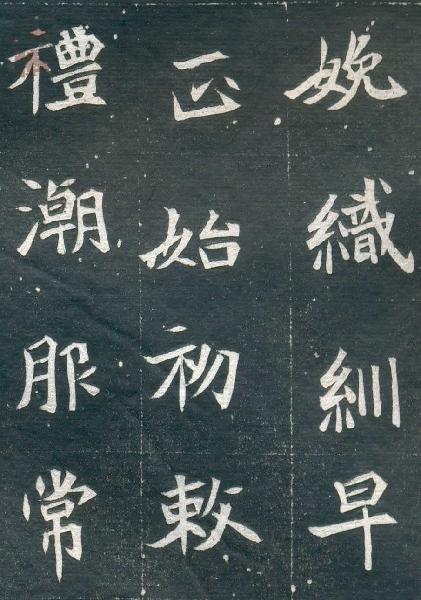 娩織紃早
正始初敕
禮潮服常